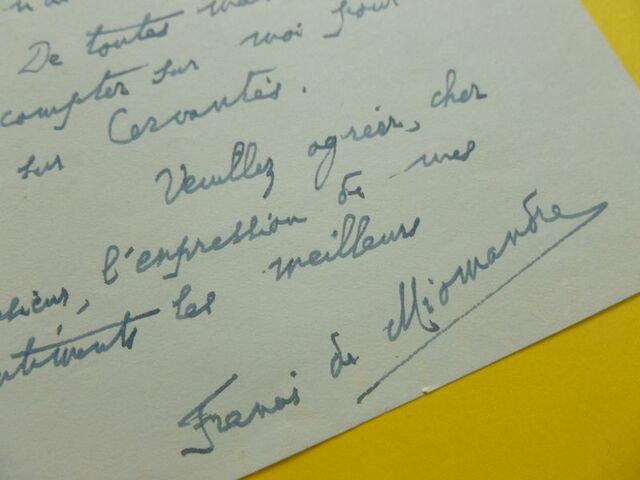 De toutes
compter sur moi pour
sur Cervantès.
Veuillez agréer, cher
sieur, l'expression de mes
ntiments les meilleurs
Francis de Miomandre